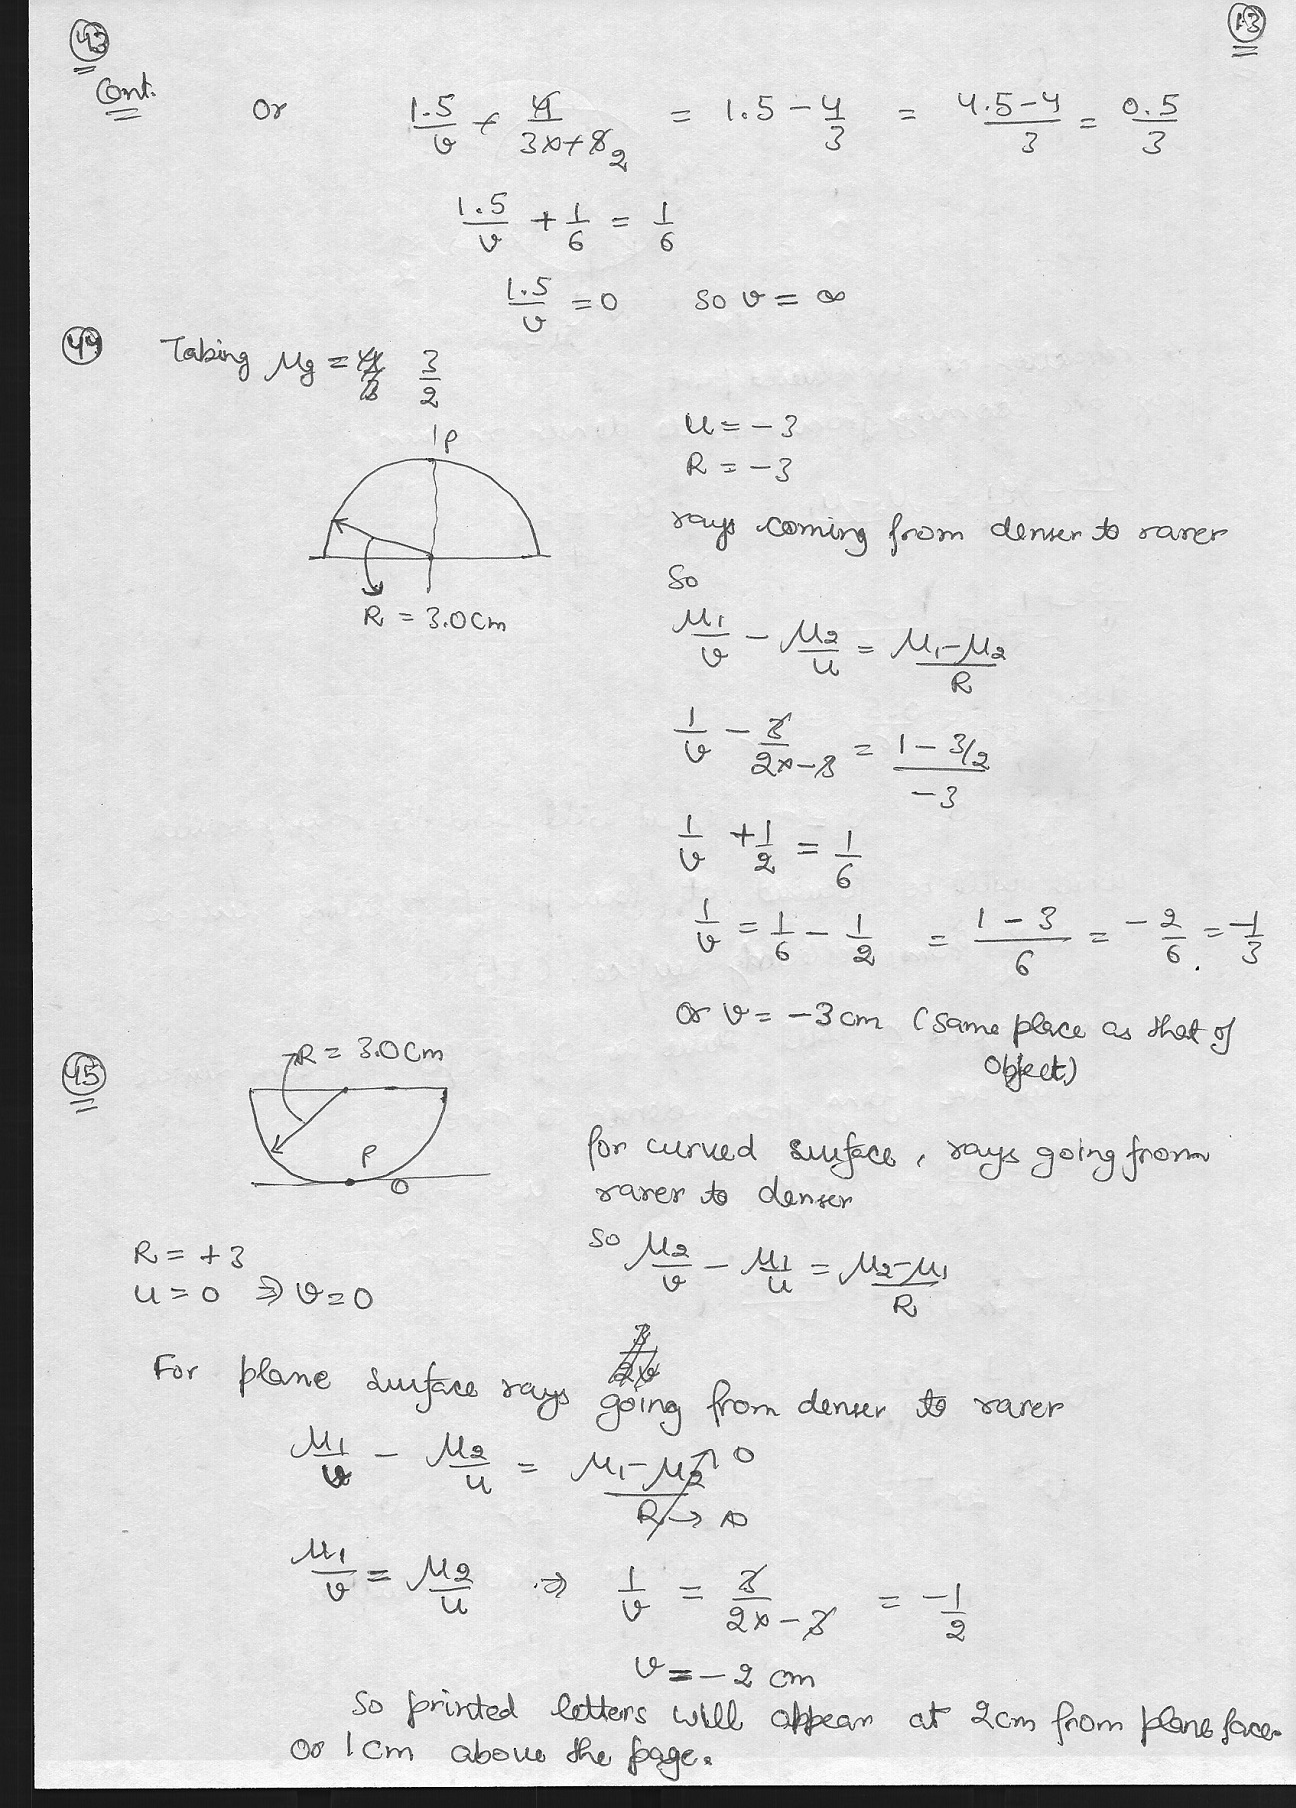 43
13
Cont.
Or 1.5/v + 4/(3x+8 2) = 1.5 - 4/3 = (4.5-4)/3 = 0.5/3
1.5/v + 1/6 = 1/6
1.5/v = 0 So v = ∞
44 Taking μg = 3/2
P
R = 3.0 cm
u = -3
R = -3
rays coming from denser to rarer
So
μ1/v - μ2/u = (μ1-μ2)/R
1/v - 3/(2x-3) = (1 - 3/2)/-3
1/v + 1/2 = 1/6
1/v = 1/6 - 1/2 = (1 - 3)/6 = -2/6 = -1/3
or v = -3 cm (same place as that of
Object)
45
R = 3.0 cm
P
O
for curved surface, rays going from
rarer to denser
So μ2/v - μ1/u = (μ2-μ1)/R
R = +3
u = 0 ⇒ v = 0
For plane surface rays going from denser to rarer
μ1/v - μ2/u = (μ1-μ2)/R → 0
R → ∞
μ1/v = μ2/u ⇒ 1/v = 3/(2x-3) = -1/2
v = -2 cm
So printed letters will appear at 2cm from plane face.
or 1 cm above the page.